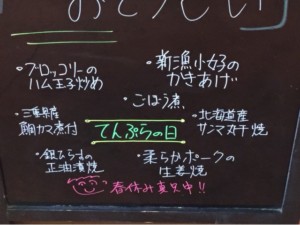 ・ブロッコリーの
ハム玉子炒め
・新漁小女子の
かきあげ
・ごぼう煮
・三重県産
鯛カマ煮付
てんぷらの日
・北海道産
サンマ丸干焼
・銀ひらすの
正油漬焼
・柔らかポークの
生姜焼
春休み真只中!!